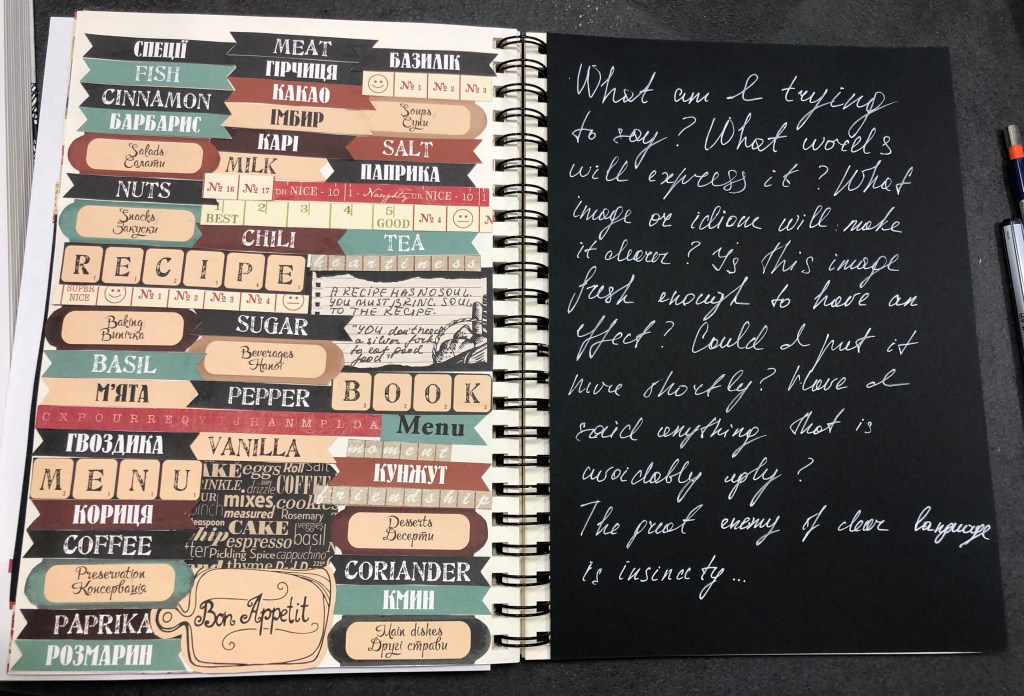 СПЕЦІЇ
MEAT
БАЗИЛІК
FISH
ГІРЧИЦЯ
№1 №2 №3
CINNAMON
КАКАО
БАРБАРИС
ІМБИР
Soups
Супи
КАРІ
SALT
Salads
Салати
MILK
ПАПРИКА
NUTS
№16 №17 OR NICE - 10 1 - Naughty OR NICE - 10 1
1 2 3 4 5
BEST GOOD №4
Snacks
Закуски
CHILI
TEA
heartiness
RECIPE
SUPER NICE №1 №2 №3 №4
A RECIPE HAS NO SOUL.
YOU MUST BRING SOUL
TO THE RECIPE.
"YOU don't need
a silver fork
to eat good
food"
Baking
Випічка
SUGAR
BASIL
Beverages
Напої
М'ЯТА
PEPPER
BOOK
CXPOURREQYTJHANMPLDA
Menu
ГВОЗДИКА
VANILLA
moment
MENU
КУНЖУТ
friendship
eggs Roll salt
drizzle COFFEE
mixes cookies
measured Rosemary
CAKE veggies
whip espresso basil
Pickling Spice cappuccino
thyme
225°
КОРИЦЯ
Desserts
Десерти
COFFEE
CORIANDER
Preservation
Консервація
КМИН
Bon Appetit
PAPRIKA
Main dishes
Другі страви
РОЗМАРИН
What am I trying
to say? What words
will express it? What
image or idiom will make
it clearer? Is this image
fresh enough to have an
effect? Could I put it
more shortly? Have I
said anything that is
avoidably ugly?
The great enemy of clear language
is insincety...